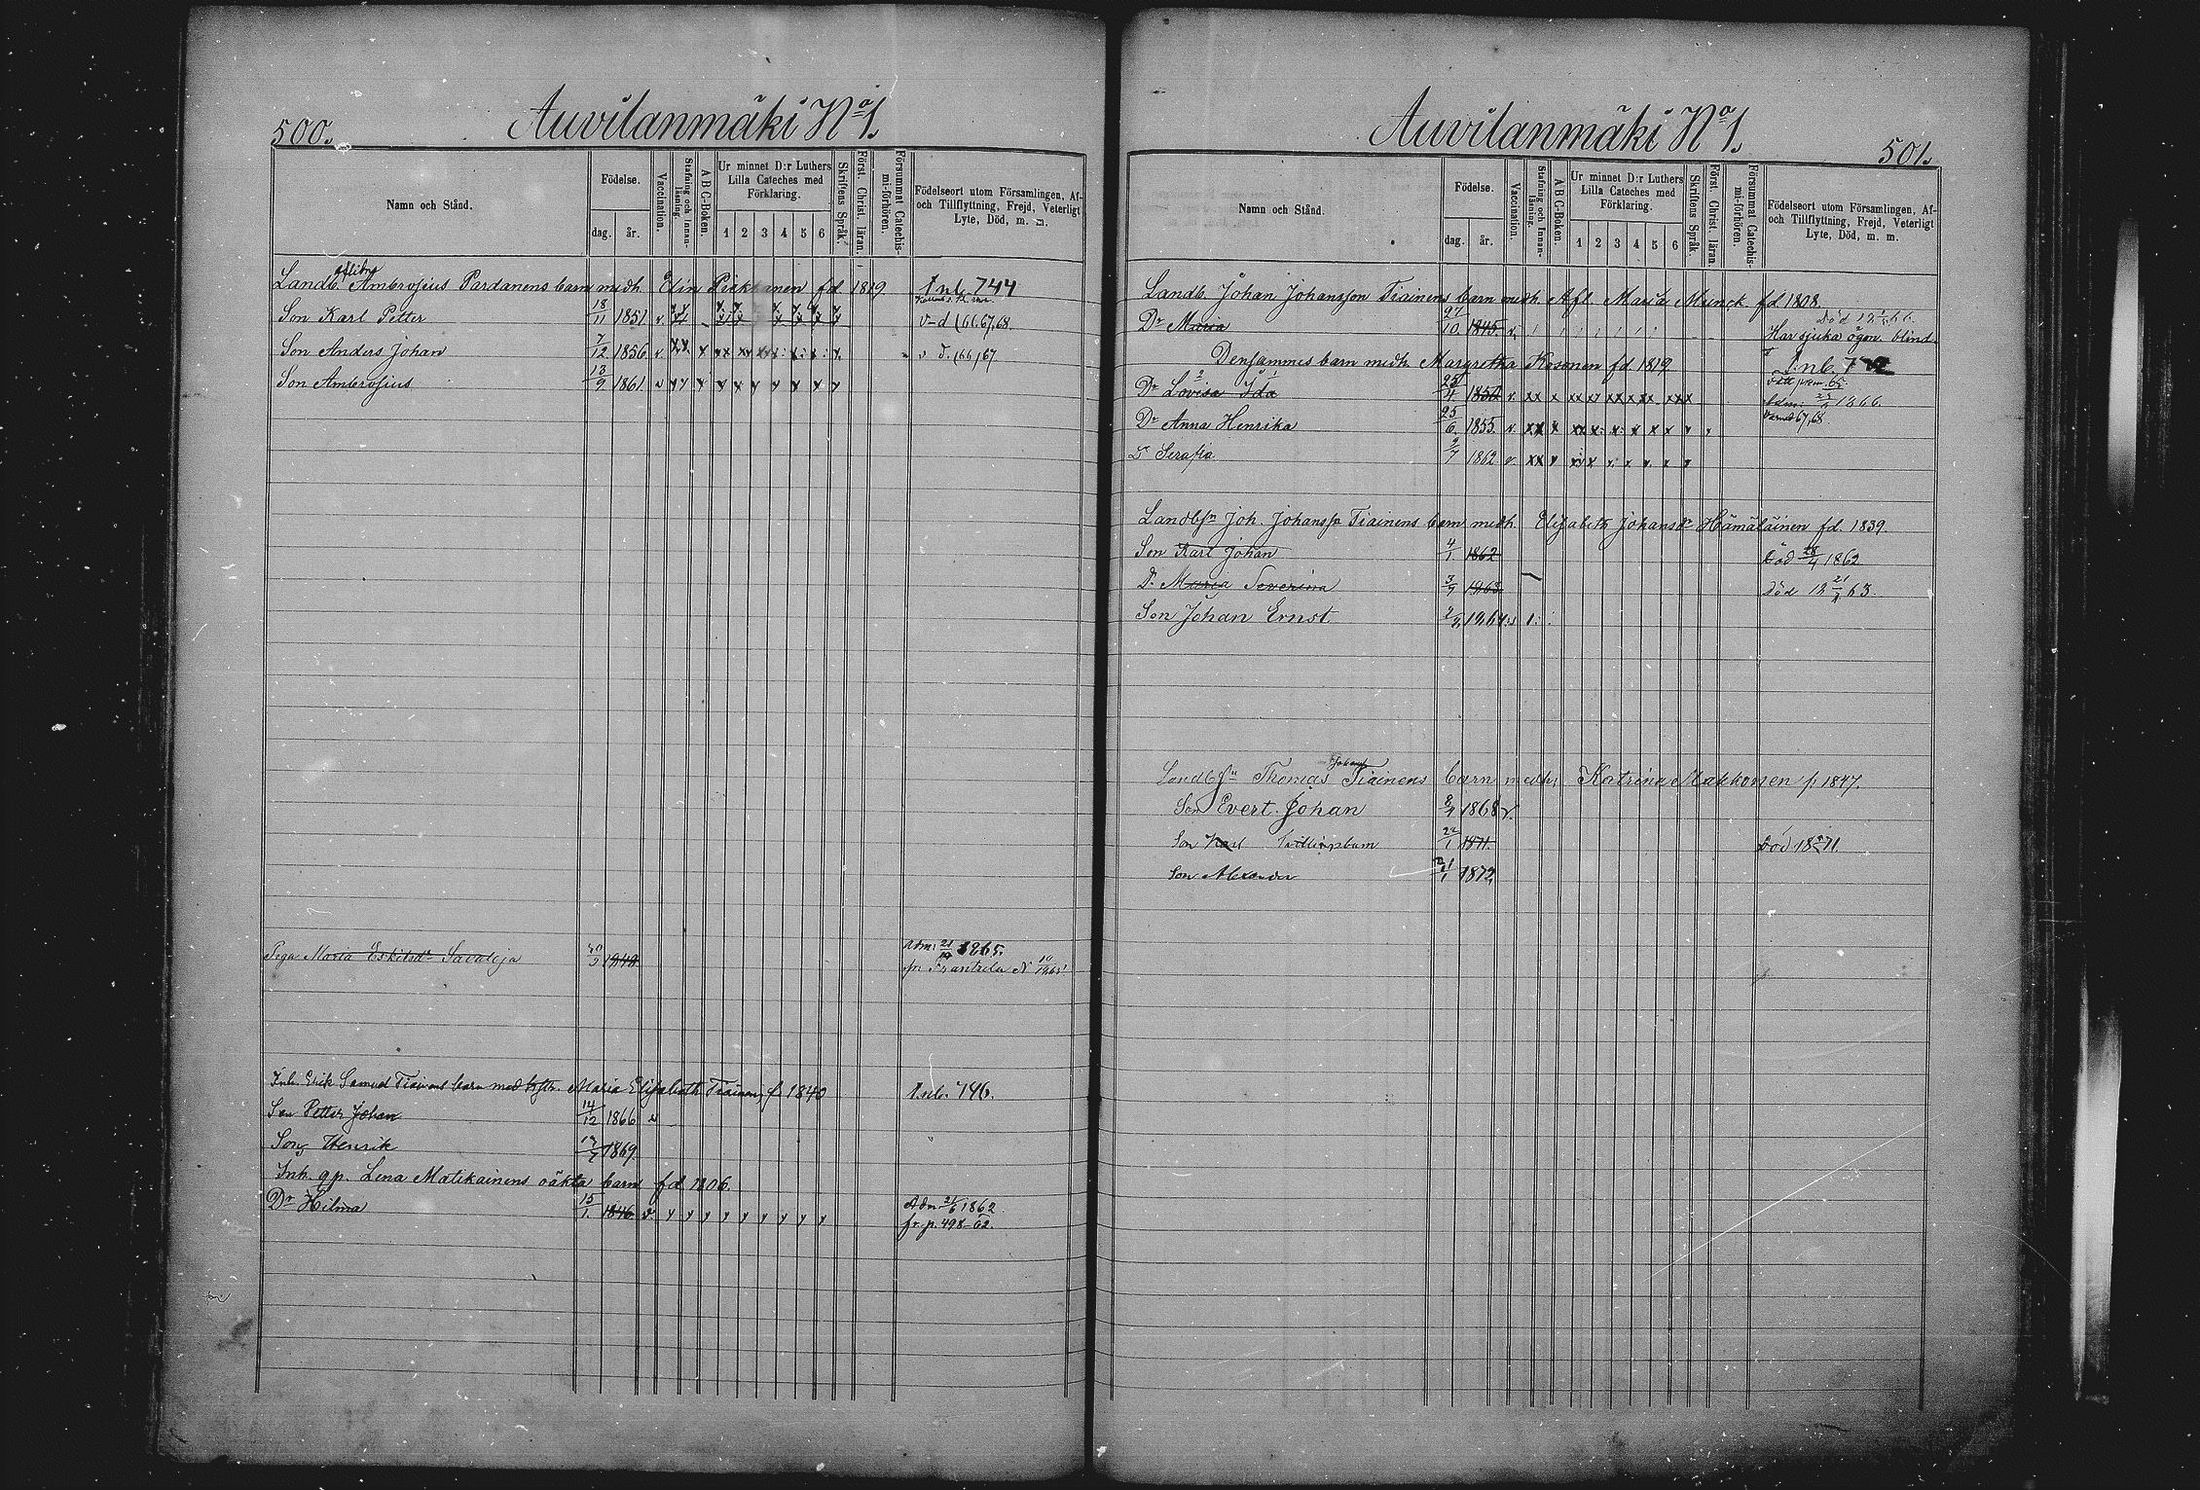 500.
Auvilanmäki No 1.
Namn och Stånd.
Födelse.
dag.
år.
Vaccination.
Stafning och Innanläsning.
A B C-Boken.
Ur minnet D:r Luthers Lilla Cateches med Förklaring.
1 2 3 4 5 6
Skriftens Språk.
Först. Christ. läran.
Försummat Catechismi-förhören.
Födelseort utom Församlingen, Af- och Tillflyttning, Frejd, Veterligt Lyte, Död, m. m.
Landb. Ambrosius Pardanens barn medh. Elin Pirkkanen fd 1819 Inl. 744
Son Karl Petter 18/11 1851 v. 66,67,68.
Son Anders Johan 7/12 1856 v 67
Son Ambrosius 13/9 1861 v
Piga Maria Eskilsdr 1848 Adm: 1865.
fr Frantsila
Inh. Erik Samuel Tiainens barn med hstr. Maria Elisabeth Tiainen f. 1840 Inl. 746.
Son Petter Johan 14/12 1866 v
Son Henrik 1869
Inh. qp. Lena Matikainens oäkta barn fd 1806.
Dr Hilma 15/1 1846 v. Adm 1862
fr. p. 498-62.
Auvilanmäki No 1.
501.
Namn och Stånd.
Födelse.
dag.
år.
Vaccination.
Stafning och Innanläsning.
A B C-Boken.
Ur minnet D:r Luthers Lilla Cateches med Förklaring.
1 2 3 4 5 6
Skriftens Språk.
Först. Christ. läran.
Försummat Catechismi-förhören.
Födelseort utom Församlingen, Af- och Tillflyttning, Frejd, Veterligt Lyte, Död, m. m.
Landb. Johan Johansson Tiainens barn medh. Afl. Maria Munck fd 1808.
Dr Maria 27/10 1845 v. Har sjuka ögon. blind.
Densammes barn medh. Margretha Kosonen fd. 1819 Inl.
Dr Lovisa Ida 1850 v. 1866.
Dr Anna Henrika 25/6 1855 v. 67,68
Dr Serafia 2/7 1862 v.
Landbsn Joh. Johanssn Tiainens barn medh. Elisabeth Johansdr Hämäläinen fd. 1839.
Son Karl Johan 4/1 1862 Död 28/4 1862
Dr Maria Severina 3/7 1863 Död 18 63.
Son Johan Ernst 1864
Landbsn Thomas Johans Tiainens barn medh. Katrina Makkonen f. 1847.
Son Evert Johan 8/9 1868 v.
Son Karl tvillingbarn 22/1 1871. Död 18 71.
Son Alexander 21/1 1872